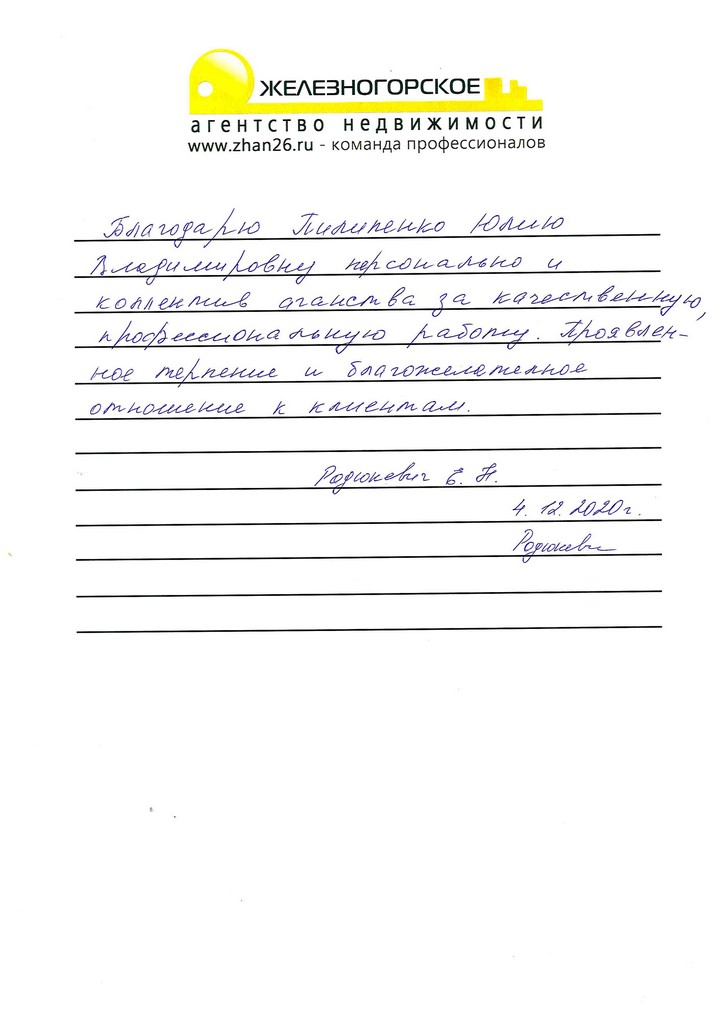 ЖЕЛЕЗНОГОРСКОЕ
агентство недвижимости
www.zhan26.ru - команда профессионалов
Благодарю Пилипенко Юлию
Владимировну персонально и
коллектив аганства за качественную,
профессиональную работу. Проявлен-
ное терпение и благожелателное
отношение к клиентам.
Родюкевич Е. Н.
4. 12. 2020г.
Родюкеви